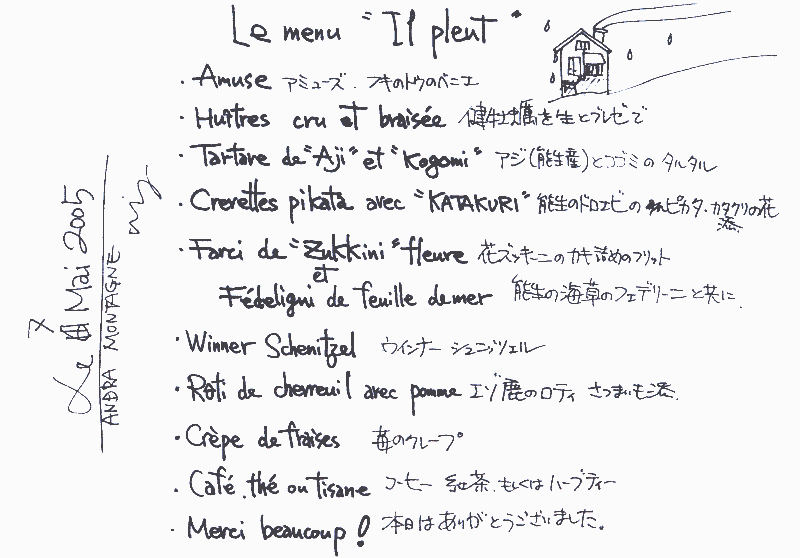 Le menu "Il pleut"
・Amuse アミューズ.フキのトウのベニエ
・Huîtres cru et braisée 牡蠣を生とブレゼで
・Tartare de "Aji" et "Kogomi" アジ(能生産)とコゴミのタルタル
・Crevettes pikata avec "KATAKURI" 能生のドロエビのピカタ.カタクリの花添
・Farci de "Zukkini" fleure 花ズッキーニのカキ詰めのフリット
et
Fédeligni de feuille de mer 能生の海草のフェデリーニと共に
・Winner Schenitzel ウインナーシュニッツェル
・Roti de cherreuil avec pomme エゾ鹿のロティ さつまいも添.
・Crèpe de fraises 苺のクレープ
・Café.thé ou tisane コーヒー 紅茶.もしくはハーブティー
・Merci beaucoup! 本日はありがとうございました。
Le 7 Mai 2005
ANDRA MONTAGNE